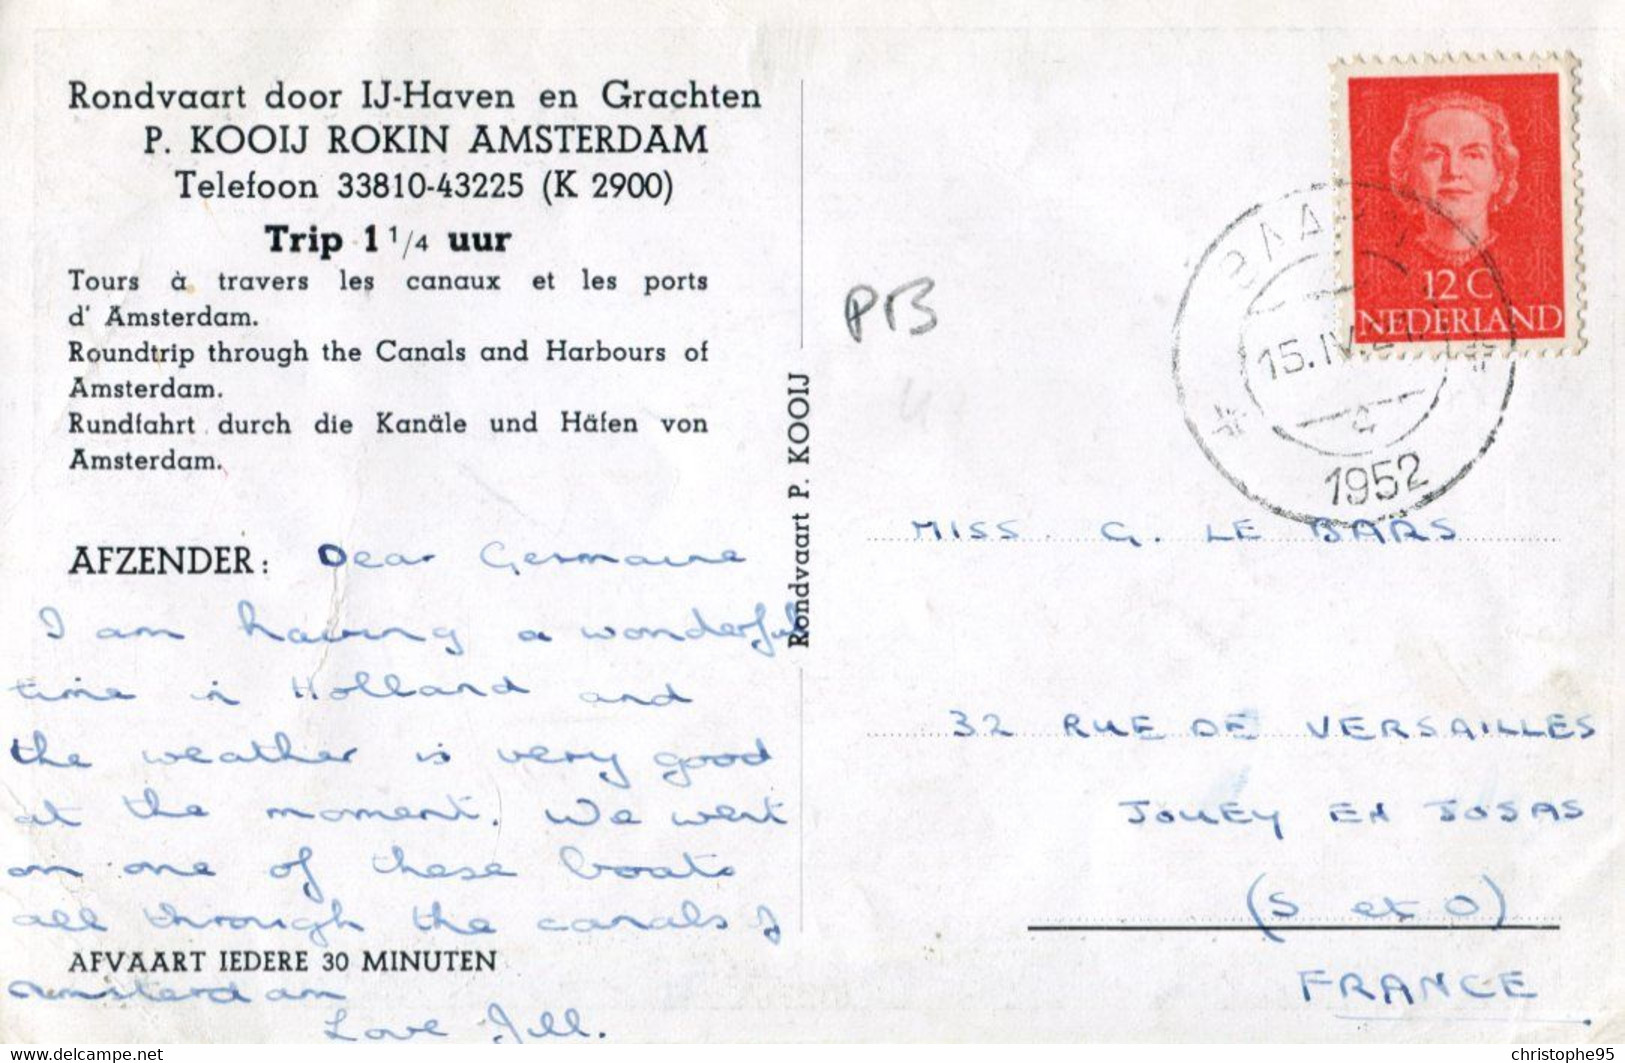 Rondvaart door IJ-Haven en Grachten
P. KOOIJ ROKIN AMSTERDAM
Telefoon 33810-43225 (K 2900)
Trip 1 1/4 uur
Tours à travers les canaux et les ports
d' Amsterdam.
Roundtrip through the Canals and Harbours of
Amsterdam.
Rundfahrt durch die Kanäle und Häfen von
Amsterdam.
AFZENDER: Dear Germaine
I am having a wonderful
time in Holland and
the weather is very good
at the moment. We went
on one of these boats
all through the canals of
AFVAART IEDERE 30 MINUTEN
Amsterdam
Love Jill.
Rondvaart P. KOOIJ
PB
12 C
NEDERLAND
BAARN
15.IV
1952
MISS. G. LE BARS
32 RUE DE VERSAILLES
JOUEY EN JOSAS
(S et O)
FRANCE
delcampe.net
christophe95